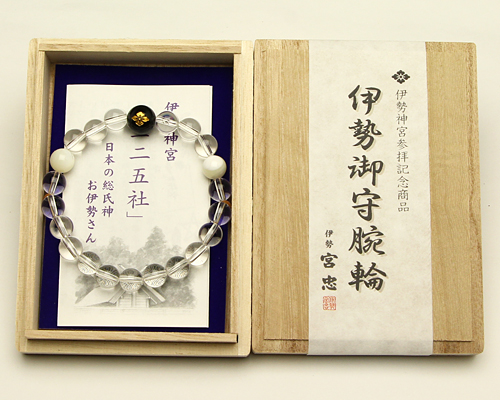 伊勢神宮参拝記念商品
伊勢御守腕輪
伊勢 宮忠
伊 神宮
二五社」
日本の総氏神
お伊勢さん